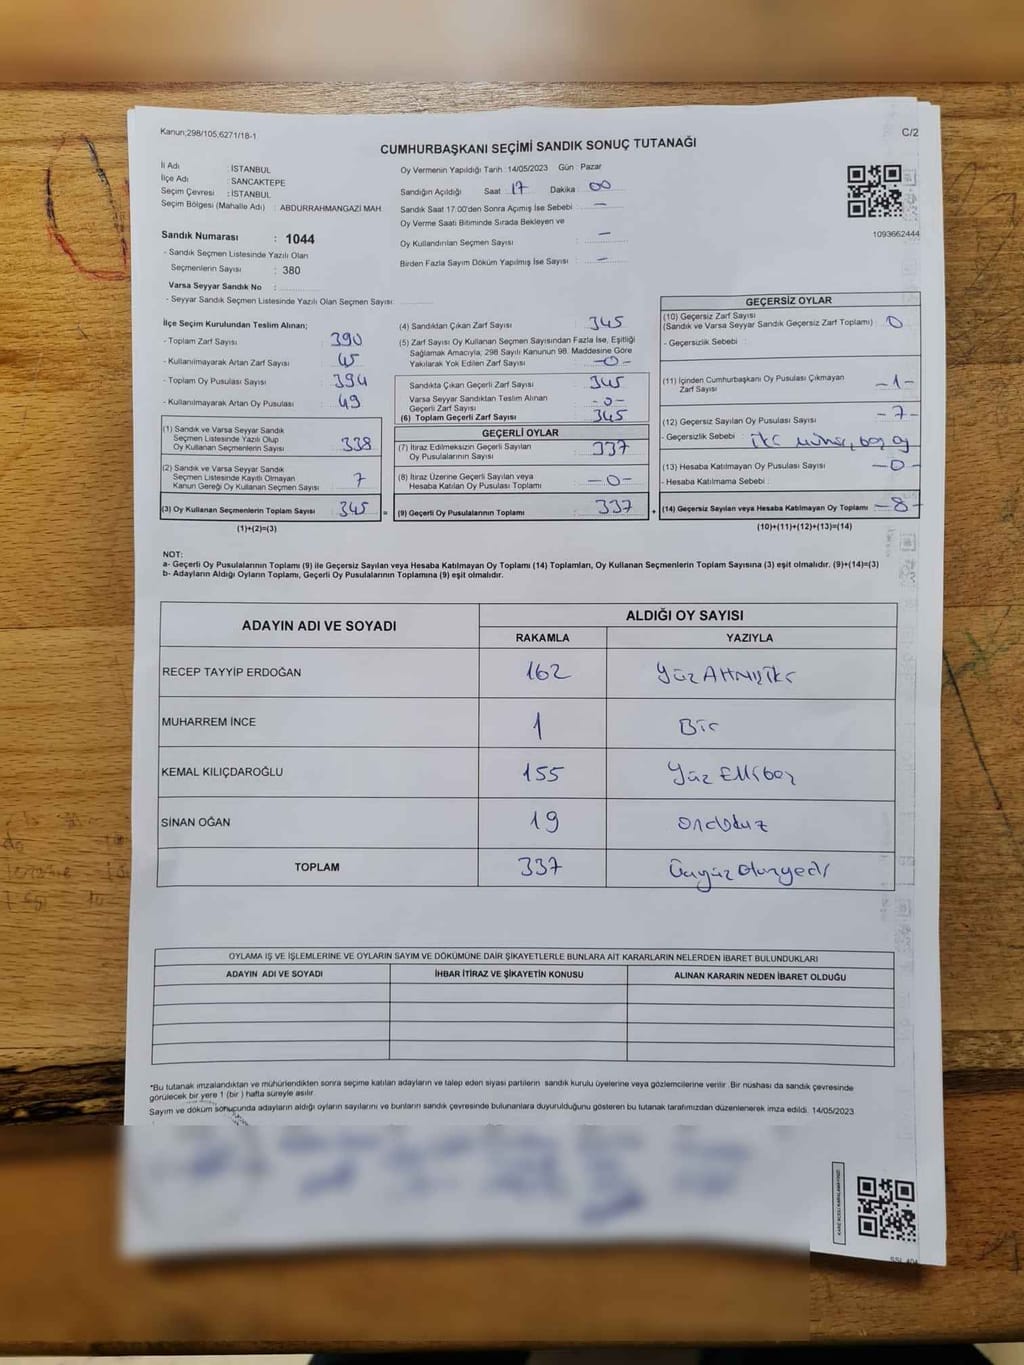 Kanun;298/105;6271/18-1
C/2
CUMHURBAŞKANI SEÇİMİ SANDIK SONUÇ TUTANAĞI
İl Adı : İSTANBUL
İlçe Adı : SANCAKTEPE
Seçim Çevresi : İSTANBUL
Seçim Bölgesi (Mahalle Adı) : ABDURRAHMANGAZİ MAH
Sandık Numarası : 1044
- Sandık Seçmen Listesinde Yazılı Olan
Seçmenlerin Sayısı : 380
Varsa Seyyar Sandık No :
- Seyyar Sandık Seçmen Listesinde Yazılı Olan Seçmen Sayısı:
Oy Vermenin Yapıldığı Tarih :14/05/2023 Gün : Pazar
Sandığın Açıldığı Saat 17 Dakika 00
Sandık Saat 17:00'den Sonra Açımış İse Sebebi : —
Oy Verme Saati Bitiminde Sırada Bekleyen ve
Oy Kullandırılan Seçmen Sayısı : —
Birden Fazla Sayım Döküm Yapılmış İse Sayısı : —
1093662444
İlçe Seçim Kurulundan Teslim Alınan;
- Toplam Zarf Sayısı : 390
- Kullanılmayarak Artan Zarf Sayısı : 45
- Toplam Oy Pusulası Sayısı : 394
- Kullanılmayarak Artan Oy Pusulası : 49
(1) Sandık ve Varsa Seyyar Sandık
Seçmen Listesinde Yazılı Olup
Oy Kullanan Seçmenlerin Sayısı : 338
(2) Sandık ve Varsa Seyyar Sandık
Seçmen Listesinde Kayıtlı Olmayan
Kanun Gereği Oy Kullanan Seçmen Sayısı : 7
(3) Oy Kullanan Seçmenlerin Toplam Sayısı : 345 =
(1)+(2)=(3)
(4) Sandıktan Çıkan Zarf Sayısı : 345
(5) Zarf Sayısı Oy Kullanan Seçmen Sayısından Fazla İse, Eşitliği
Sağlamak Amacıyla; 298 Sayılı Kanunun 98. Maddesine Göre
Yakılarak Yok Edilen Zarf Sayısı : —0—
Sandıkta Çıkan Geçerli Zarf Sayısı : 345
Varsa Seyyar Sandıktan Teslim Alınan
Geçerli Zarf Sayısı : -0-
(6) Toplam Geçerli Zarf Sayısı : 345
GEÇERLİ OYLAR
(7) İtiraz Edilmeksizin Geçerli Sayılan
Oy Pusulalarının Sayısı : 337
(8) İtiraz Üzerine Geçerli Sayılan veya
Hesaba Katılan Oy Pusulası Toplamı : —0—
(9) Geçerli Oy Pusulalarının Toplamı : 337 +
GEÇERSİZ OYLAR
(10) Geçersiz Zarf Sayısı
(Sandık ve Varsa Seyyar Sandık Geçersiz Zarf Toplamı) : 0
- Geçersizlik Sebebi :
(11) İçinden Cumhurbaşkanı Oy Pusulası Çıkmayan
Zarf Sayısı : —1—
(12) Geçersiz Sayılan Oy Pusulası Sayısı : —7—
- Geçersizlik Sebebi : iki mühür, boş oy
(13) Hesaba Katılmayan Oy Pusulası Sayısı : —0—
- Hesaba Katılmama Sebebi :
(14) Geçersiz Sayılan veya Hesaba Katılmayan Oy Toplamı : —8—
(10)+(11)+(12)+(13)=(14)
NOT:
a- Geçerli Oy Pusulalarının Toplamı (9) ile Geçersiz Sayılan veya Hesaba Katılmayan Oy Toplamı (14) Toplamları, Oy Kullanan Seçmenlerin Toplam Sayısına (3) eşit olmalıdır. (9)+(14)=(3)
b- Adayların Aldığı Oyların Toplamı, Geçerli Oy Pusulalarının Toplamına (9) eşit olmalıdır.
ADAYIN ADI VE SOYADI
ALDIĞI OY SAYISI
RAKAMLA YAZIYLA
RECEP TAYYİP ERDOĞAN 162 Yüz Altmışiki
MUHARREM İNCE 1 Bir
KEMAL KILIÇDAROĞLU 155 Yüz Ellibeş
SİNAN OĞAN 19 ondokuz
TOPLAM 337 Üçyüz Otuzyedi
OYLAMA İŞ VE İŞLEMLERİNE VE OYLARIN SAYIM VE DÖKÜMÜNE DAİR ŞİKAYETLERLE BUNLARA AİT KARARLARIN NELERDEN İBARET BULUNDUKLARI
ADAYIN ADI VE SOYADI İHBAR İTİRAZ VE ŞİKAYETİN KONUSU ALINAN KARARIN NEDEN İBARET OLDUĞU
*Bu tutanak imzalandıktan ve mühürlendikten sonra seçime katılan adayların ve talep eden siyasi partilerin sandık kurulu üyelerine veya gözlemcilerine verilir .Bir nüshası da sandık çevresinde
görülecek bir yere 1 (bir ) hafta süreyle asılır.
Sayım ve döküm sonucunda adayların aldığı oyların sayılarını ve bunların sandık çevresinde bulunanlara duyurulduğunu gösteren bu tutanak tarafımızdan düzenlenerek imza edildi. 14/05/2023